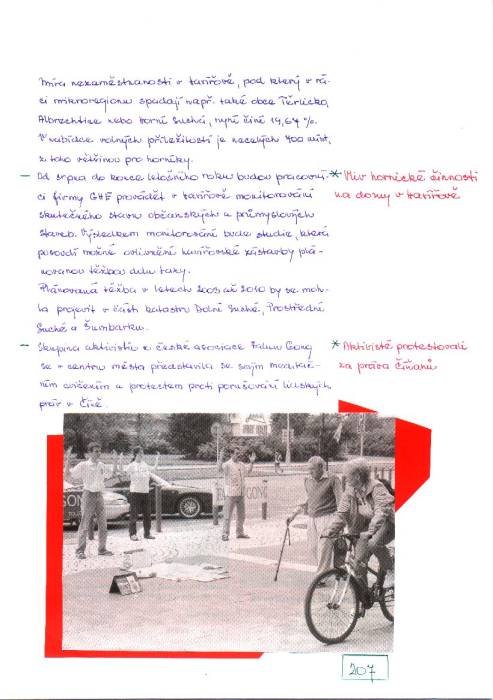 Míra nezaměstnanosti v Havířově, pod který v rá-
ci mikroregionu spadají např. také obce Těrlicko,
Albrechtice nebo Horní Suchá, nyní činí 19,67 %.
V nabídce volných příležitostí je necelých 400 míst,
z toho většinou pro horníky.
– Od srpna do konce letošního roku budou pracovní-
ci firmy GHE provádět v Havířově monitorování
skutečného stavu občanských a průmyslových
staveb. Výsledkem monitorování bude studie, která
posoudí možné ovlivnění havířovské zástavby plá-
novanou těžbou dolu Lazy.
Plánovaná těžba v letech 2003 až 2010 by se moh-
la projevit v části katastru Dolní Suché, Prostřední
Suché a Šumbarku.
* Vliv hornické činnosti
na domy v Havířově
– Skupina aktivistů z české asociace Falun Gong
se v centru města představila se svým meditač-
ním cvičením a protestem proti porušování lidských
práv v Číně.
* Aktivisté protestovali
za práva Číňanů
GONG
GONG
207